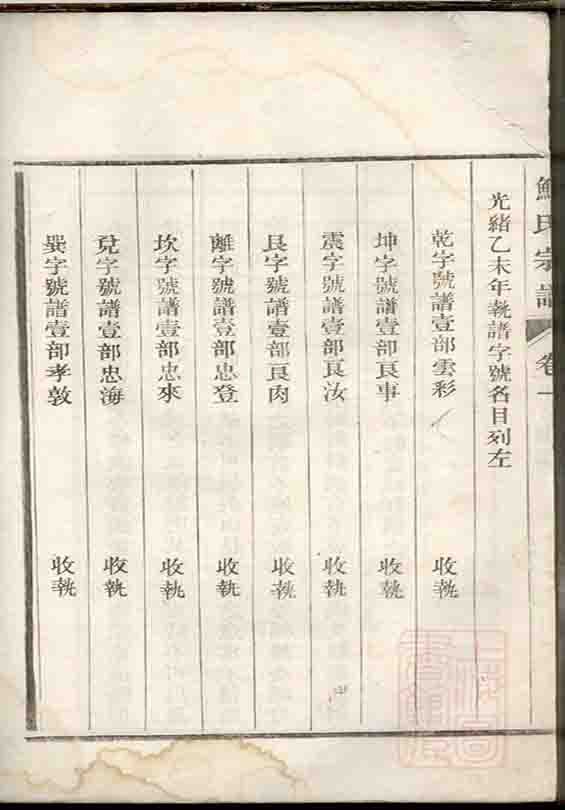 鮑氏宗譜 卷一
光緒乙未年執譜字號名目列左
乾字號譜壹部雲彩 收執
坤字號譜壹部良事 收執
震字號譜壹部良汝 收執
艮字號譜壹部良肉 收執
離字號譜壹部忠登 收執
坎字號譜壹部忠來 收執
兌字號譜壹部忠海 收執
巽字號譜壹部孝敦 收執